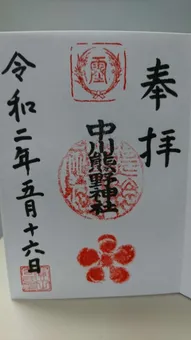 奉拝
中川熊野神社
令和二年五月十六日